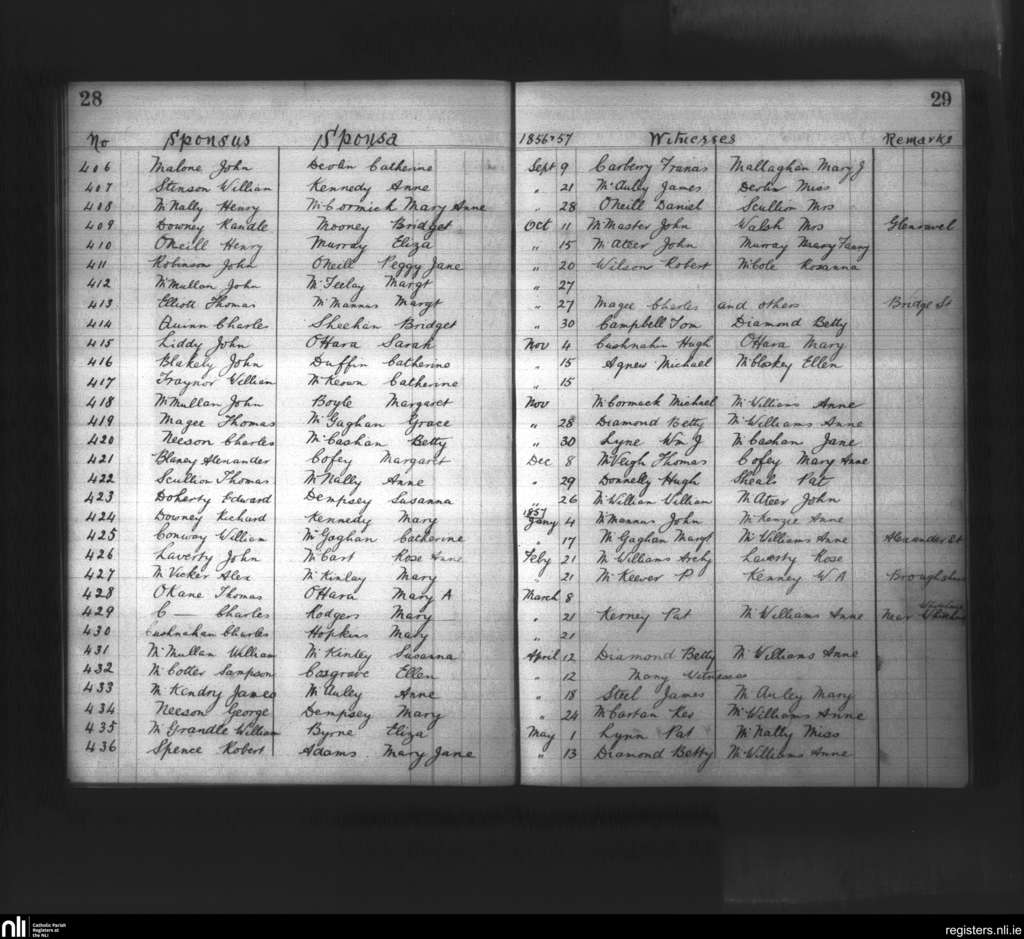 28 29
No Sponsus Sponsa 1856+57 Witnesses Remarks
406 Malone John Devlin Catherine Sept 9 Carberry Franas Mallaghan Mary J
407 Stenson William Kennedy Anne " 21 McAuley James Devlin Miss
408 McNally Henry McCormick Mary Anne " 28 ONeill Daniel Scullion Mrs
409 Downey Randle Mooney Bridget Oct 11 McMaster John Walsh Mrs Glenravel
410 ONeill Henry Murray Eliza " 15 McAteer John Murray Mary Fanny
411 Robinson John ONeill Peggy Jane " 20 Wilson Robert McCole Rosanna
412 McMullan John McFeelay Margt " 27
413 Elliott Thomas McMannus Margt " 27 Magee Charles and others Bridge St
414 Quinn Charles Sheehan Bridget " 30 Campbell Tom Diamond Betty
415 Liddy John OHara Sarah Nov 4 Cushnahan Hugh OHara Mary
416 Blakely John Duffin Catherine " 15 Agnew Michael McCloskey Ellen
417 Traynor William McKeown Catherine " 15
418 McMullan John Boyle Margaret Nov McCormack Michael McWilliams Anne
419 Magee Thomas McGaghan Grace " 28 Diamond Betty McWilliams Anne
420 Neeson Charles McCashan Betty " 30 Lyne Wm J McCashan Jane
421 Blaney Alexander Cofey Margaret Dec 8 McVeigh Thomas Cofey Mary Anne
422 Scullion Thomas McNally Anne " 29 Donnelly Hugh Sheals Pat
423 Doherty Edward Dempsey Susanna " 26 McWillian Villian McAteer John
424 Downey Richard Kennedy Mary 1857 Jany 4 McMannus John McKenzie Anne
425 Conway William McGaghan Catherine " 17 McGaghan Margt McWilliams Anne Alexander St
426 Laverty John McCart Rose Anne Feby 21 McWilliams Archy Laverty Rose
427 McVicker Alex McKinlay Mary " 21 McKeever P Kenney W A Broughshane
428 OKane Thomas OHara Mary A March 8
429 C— Charles Rodgers Mary " 21 Kerney Pat McWilliams Anne near
430 Cushnahan Charles Hopkins Mary " 21
431 McMullan William McKinley Susanna April 12 Diamond Betty McWilliams Anne
432 McCotter Sampson Cosgrove Ellen " 12 Many Witnesses
433 McKendry James McAuley Anne " 18 Steel James McAuley Mary
434 Neeson George Dempsey Mary " 24 McCartan Rev McWilliams Anne
435 McGrandle William Byrne Eliza May 1 Lynn Pat McNally Miss
436 Spence Robert Adams Mary Jane " 13 Diamond Betty McWilliams Anne
nli Catholic Parish Registers at the NLI
registers.nli.ie